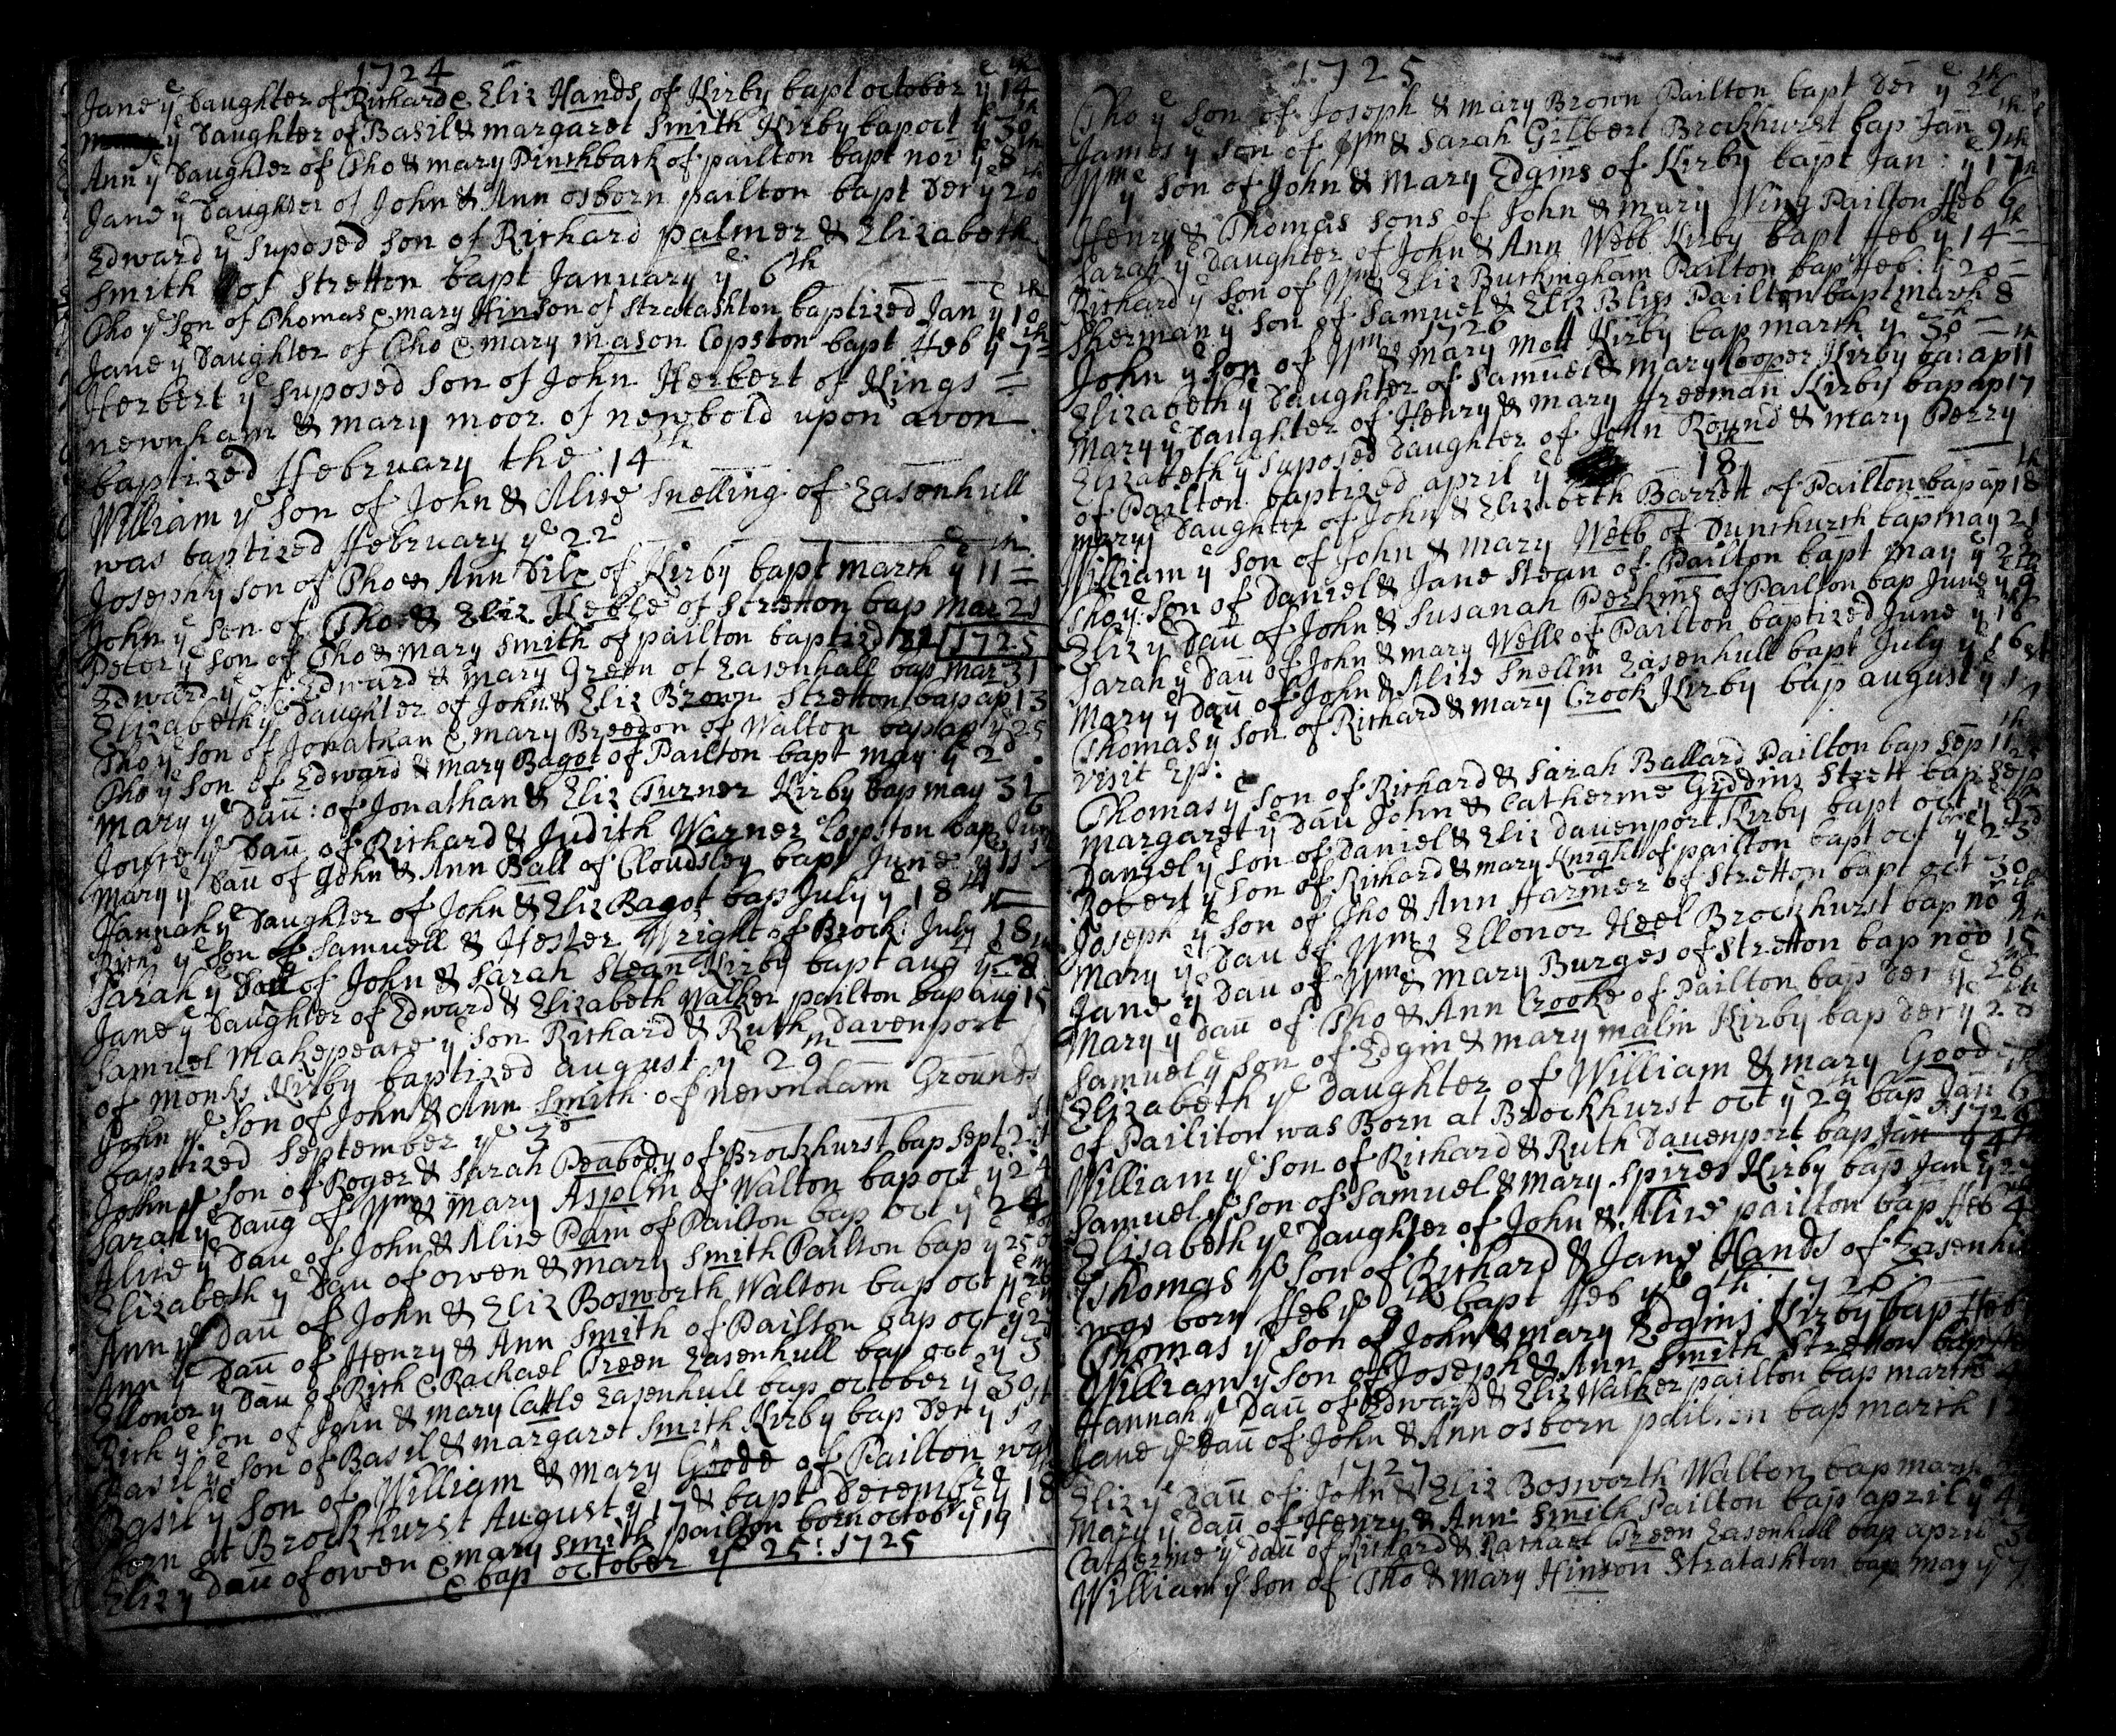 1724
Jane ye Daughter of Richard & Eliz Hands of Kirby bapt october ye 14th
ye Daughter of Basil & margaret Smith Kirby bap oct ye 30th
Ann ye Daughter of Tho & mary Pinchback of pailton bapt nov ye 8th
Jane ye Daughter of John & Ann osborn pailton bapt Dec ye 20th
Edward ye Suposed Son of Richard palmer & Elizabeth
Smith of Stretton bapt January ye 6th
Tho ye Son of Thomas & mary Hinson of Stratashton baptized Jan ye 10th
Jane ye Daughter of Tho & mary mason Copston bapt Feb ye 7th
Herbert ye Suposed Son of John Herbert of Kings =
newnham & mary moor of newbold upon avon
baptized February the 14th
William ye Son of John & Alice Snelling of Easenhull
was baptized February ye 22d
Joseph ye Son of Tho & Ann Dile of Kirby bapt march ye 11th
John ye Son of Tho & Eliz Keble of Stretton bap mar 21
Peter ye Son of Tho & mary Smith of pailton baptized 1725
Edward ye of Edward & mary Green of Easenhall bap mar 31
Elizabeth ye Daughter of John & Eliz Brown Stretton bap ap 13
Tho ye Son of Jonathan & mary Breedon of Walton bap ap ye 25
Tho ye Son of Edward & mary Bagot of Pailton bapt may ye 2d
Mary ye Dau: of Jonathan & Eliz Turner Kirby bap may 31
Joyce ye Dau of Richard & Judith Warner Copston bap Jun 6
Mary ye Dau of John & Ann Ball of Cloudsley bapt June ye 11th
Hannah ye Daughter of John & Eliz Bagot bap July ye 18th
Richd ye Son of Samuell & Hester Wright of Brock: July 18
Sarah ye Dau of John & Sarah Stean Kirby bapt aug ye 8
Jane ye Daughter of Edward & Elizabeth Walker pailton bap aug 15
Samuel Makepeace ye Son Richard & Ruth Davenport
of monks Kirby baptized august ye 29th
John ye Son of John & Ann Smith of newnham Grounds
baptized September ye 3d
John ye Son of Roger & Sarah Peabody of Brockhurst bap Sept 21
Sarah ye Daug of Wm & mary Asplin of Walton bap oct ye 24
Alice ye Dau of John & Alice Pain of Pailton bap oct ye 24
Elizabeth ye Dau of owen & mary Smith Pailton bap ye 25
Ann ye Dau of John & Eliz Bosworth Walton bap oct ye 26
Ann ye Dau of Henry & Ann Smith of Pailton bap oct ye
Ellonor ye Dau of Rich & Rachael Green Easenhull bap oct ye 3
Rich ye Son of John & mary Cattle Easenhull bap october ye 30
Basil ye Son of Basil & margaret Smith Kirby bap Dec ye 1st
Basil ye Son of William & mary Goode of Pailton was
born at Brockhurst August ye 17 & bapt December ye 18
Eliz ye Dau of owen & mary Smith pailton born octob ye 19
& bap october ye 25: 1725
1725
Tho ye Son of Joseph & mary Brown Pailton bapt Dec ye 26th
James ye Son of Wm & Sarah Gilbert Brockhurst bap Jan 9th
Wm ye Son of John & Mary Edgins of Kirby bapt Jan: ye 17th
Henry & Thomas Sons of John & mary Wing Pailton Feb 6
Sarah ye Daughter of John & Ann Webb Kirby bapt Feb ye 14th
Richard ye Son of Wm & Eliz Buckingham Pailton bap Feb: ye 20
Sherman ye Son of Samuel & Eliz Bliss Pailton bapt march 8
1726
John ye Son of Wm & Mary Mott Kirby bap march ye 30th
Elizabeth ye Daughter of Samuel & Mary Cooper Kirby bap ap 11
Mary ye Daughter of Henry & mary Freeman Kirby bap ap 17
Elizabeth ye Suposed Daughter of John Round & mary Perry
of Pailton baptized april ye 18th
mary ye Daughter of John & Elizabeth Barrett of Pailton bap ap 18
William ye Son of John & Mary Webb of Dunchurch bap may 21
Tho ye Son of Daniel & Jane Stean of Pailton bapt may ye 22
Eliz ye Dau of John & Susanah Perkins of Pailton bap June ye 9
Sarah ye Dau of John & mary Wells of Pailton baptized June ye 16
Mary ye Dau of John & Alice Snellin Easenhull bapt July ye 16
Thomas ye Son of Richard & mary Crook Kirby bap august ye 1st
Visit Ep:
Thomas ye Son of Richard & Sarah Ballard Pailton bap Sep 11th
margaret ye Dau John & Catherine Giddins Strett bap Sep
Daniel ye Son of Daniel & Eliz Davenport Kirby bapt oct ye 9
Robert ye Son of Richard & mary Knight of pailton bapt oct ye 23
Joseph ye Son of Tho & Ann Harmer of Stretton bapt oct 30
Mary ye Dau of Wm & Ellonor Heel Brockhurst bap no 9
Jane ye Dau of Wm & mary Burges of Stretton bap nov 15
Mary ye Dau of Tho & Ann Crooke of Pailton bap Dec ye 26
Samuel ye Son of Edgin & mary malin Kirby bap Dec ye 28
Elizabeth ye Daughter of William & mary Good
of Pailiton was Born at Brockhurst oct ye 29th bap Jan 6
William ye Son of Richard & Ruth Davenport bap Jan 1726
Samuel ye Son of Samuel & mary Spires Kirby bap Jan ye
Elisabeth ye Daughter of John & Alice pailton bap Feb 4
Thomas ye Son of Richard & Jane Hands of Easenhull
was born Feb ye 9th bapt Feb ye 9th 1726
Thomas ye Son of John & mary Edgins Kirby bap Feb
William ye Son of Joseph & Ann Smith Stretton bap
Hannah ye Dau of Edward & Eliz Walker pailton bap march
Jane ye Dau of John & Ann osborn pailton bap march 12
1727
Eliz ye Dau of John & Eliz Bosworth Walton bap march
Mary ye Dau of Henry & Ann Smith Pailton bap april ye 4
Catherine ye Dau of Richard & Rachael Green Easenhull bap april
William ye Son of Tho & Mary Hinson Stratashton bap may ye